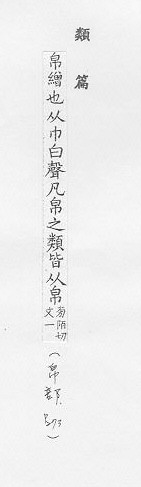 類篇
帛繒也从巾白聲凡帛之類皆从帛
旁陌切
文一
(帛部